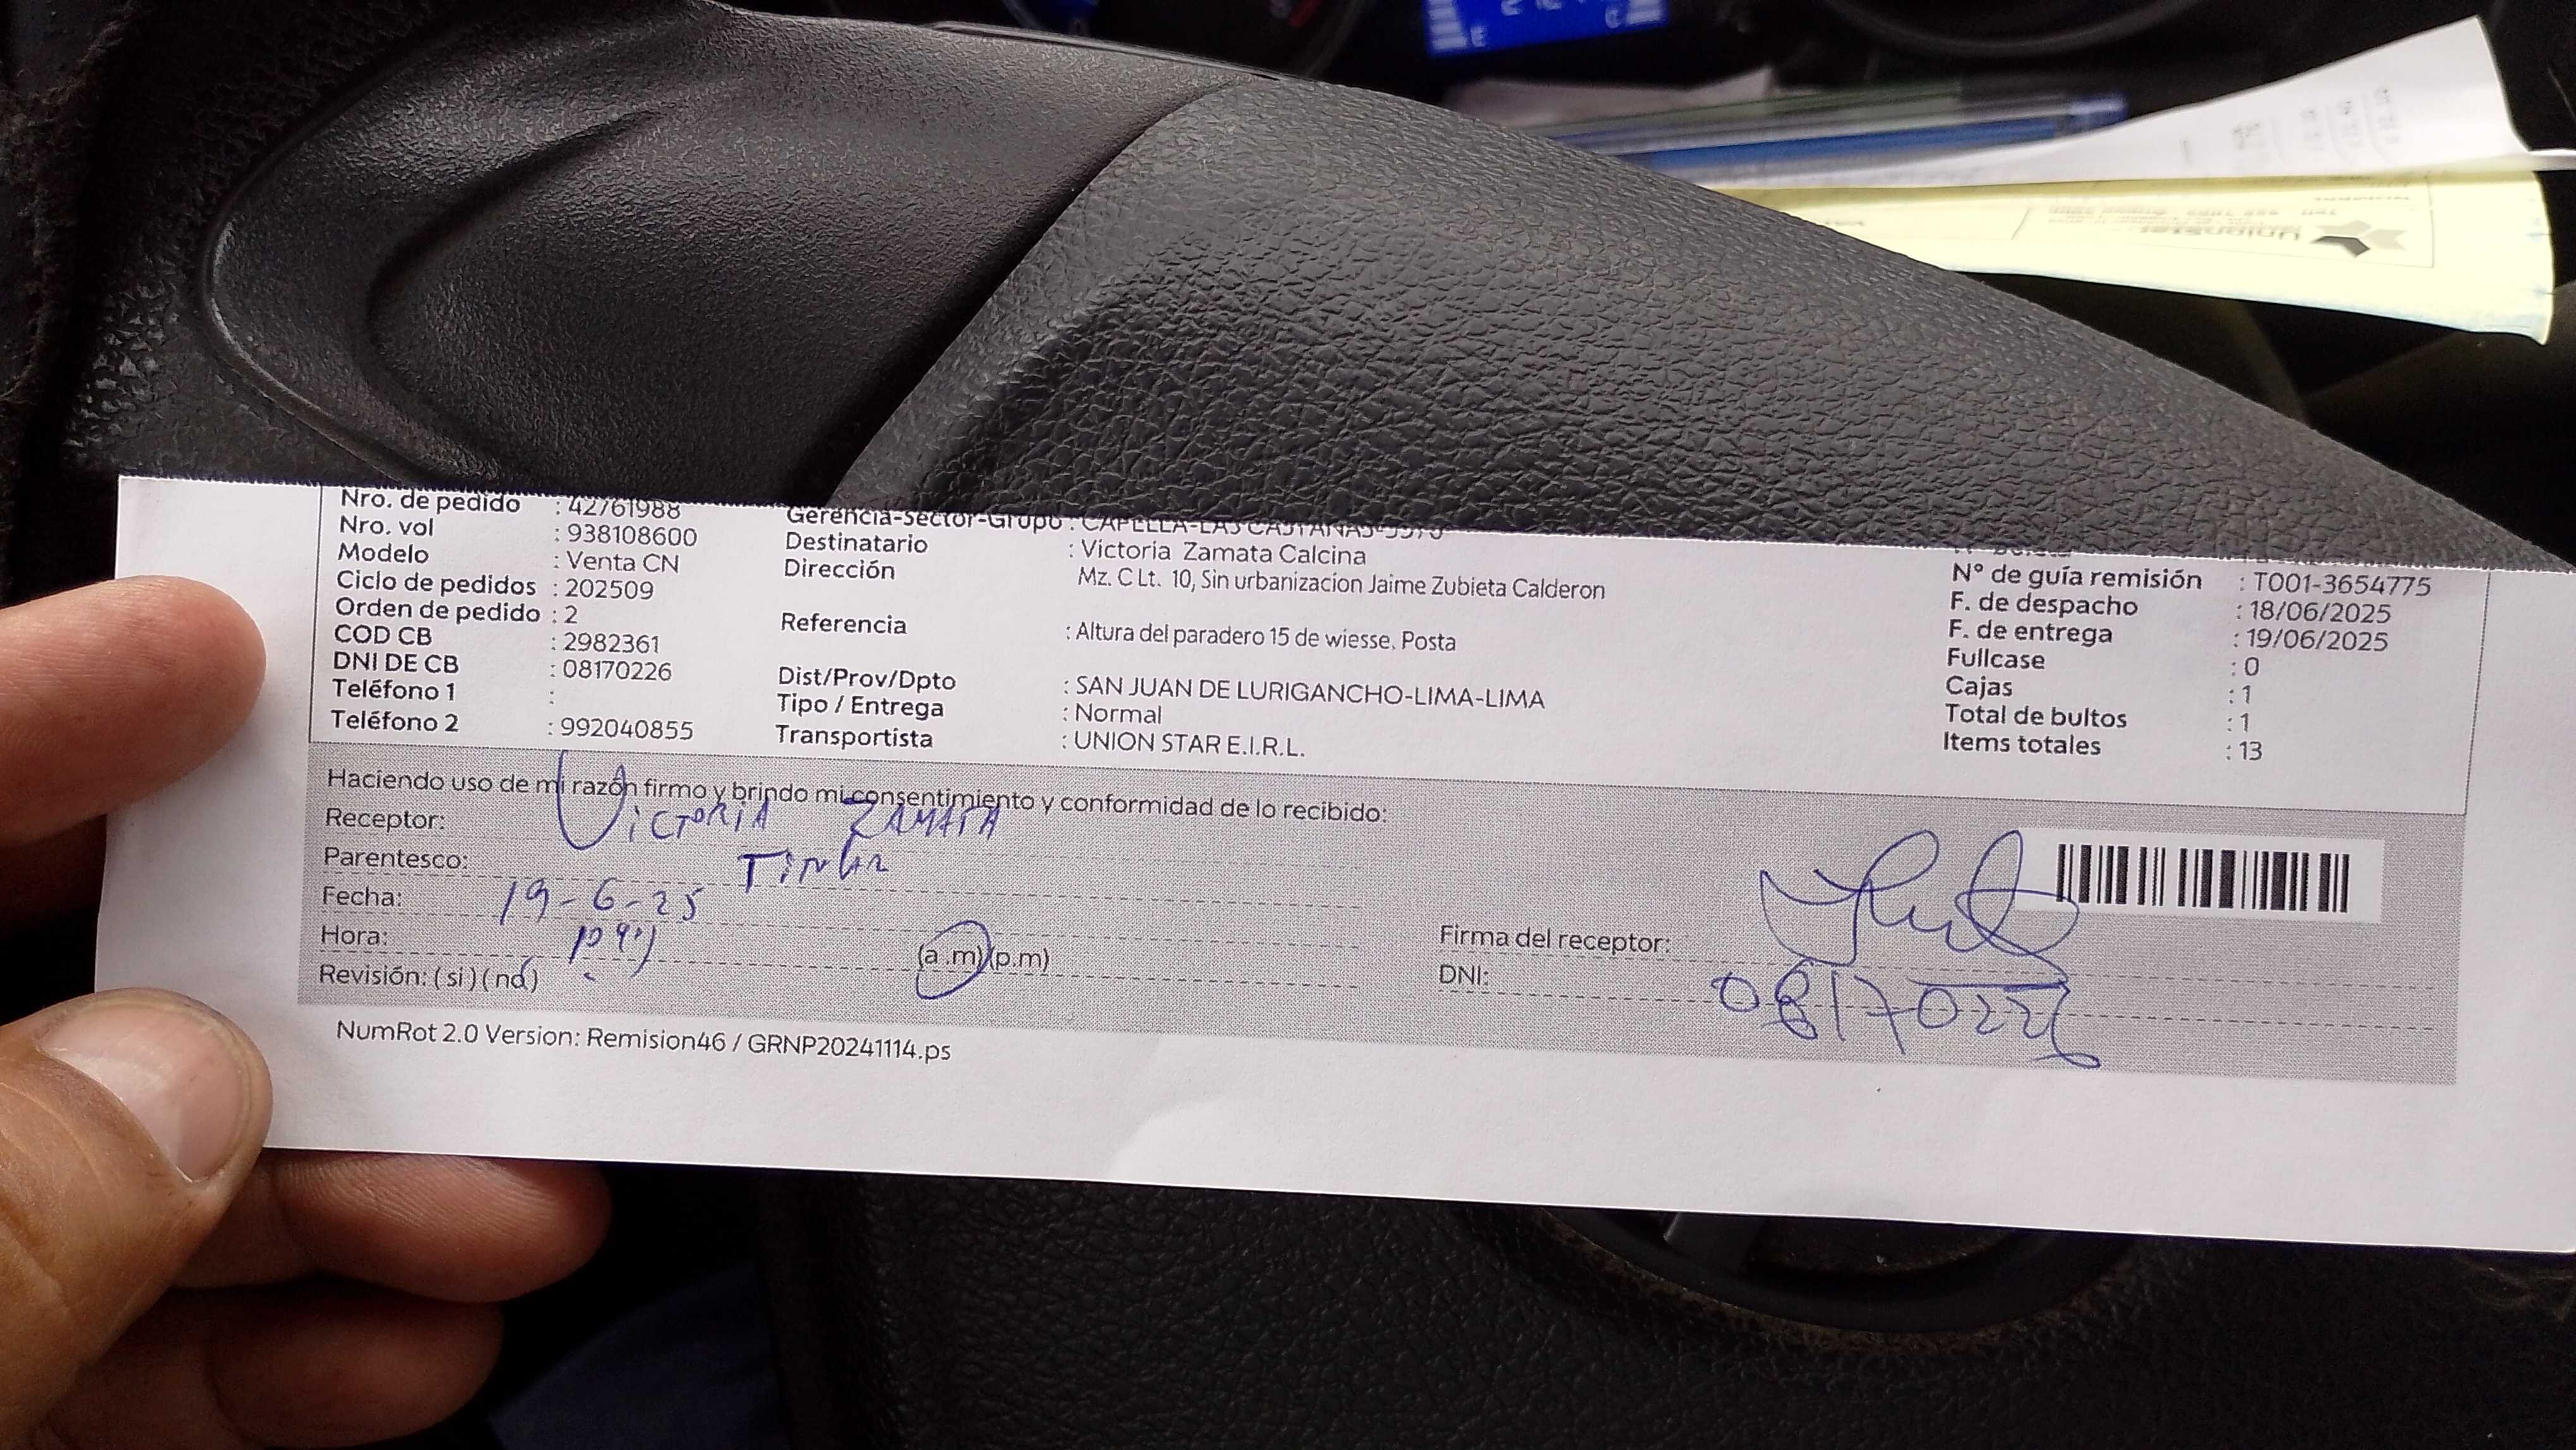 Nro. de pedido : 42761988
Nro. vol : 938108600
Modelo : Venta CN
Ciclo de pedidos : 202509
Orden de pedido : 2
COD CB : 2982361
DNI DE CB : 08170226
Teléfono 1 :
Teléfono 2 : 992040855
Gerencia-Sector-Grupo : CAPELLA-LAS CASTAÑAS-5570
Destinatario : Victoria Zamata Calcina
Dirección Mz. C Lt. 10, Sin urbanizacion Jaime Zubieta Calderon
Referencia : Altura del paradero 15 de wiesse. Posta
Dist/Prov/Dpto : SAN JUAN DE LURIGANCHO-LIMA-LIMA
Tipo / Entrega : Normal
Transportista : UNION STAR E.I.R.L.
N° de guía remisión : T001-3654775
F. de despacho : 18/06/2025
F. de entrega : 19/06/2025
Fullcase : 0
Cajas : 1
Total de bultos : 1
Items totales : 13
Haciendo uso de mi razón firmo y brindo mi consentimiento y conformidad de lo recibido:
Receptor: VICTORIA ZAMATA
Parentesco:
Fecha: 19-6-25
Hora: (a.m) (p.m)
Revisión: (si) (no)
Firma del receptor:
DNI: 08170226
NumRot 2.0 Version: Remision46 / GRNP20241114.ps
UnionStar